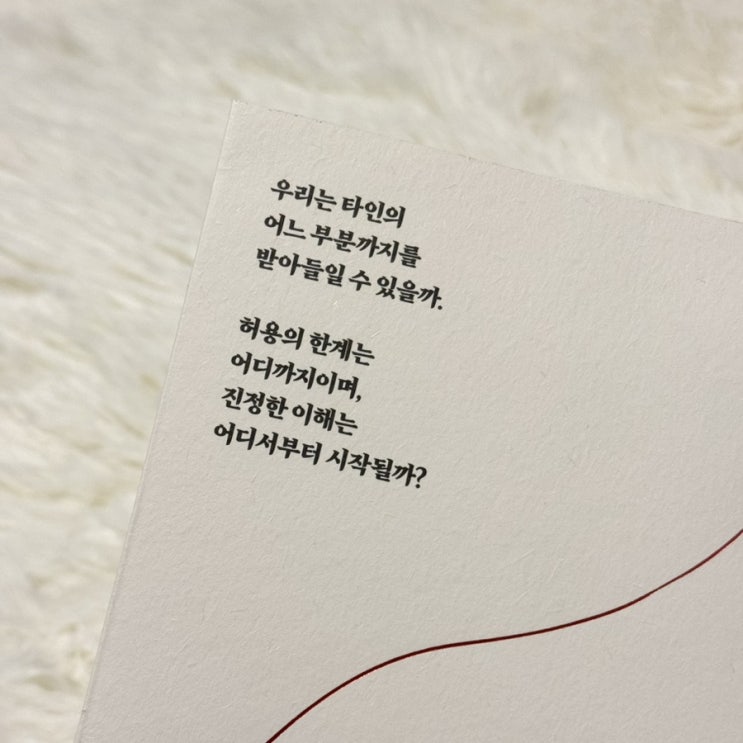 우리는 타인의
어느 부분까지를
받아들일 수 있을까.
허용의 한계는
어디까지이며,
진정한 이해는
어디서부터 시작될까?